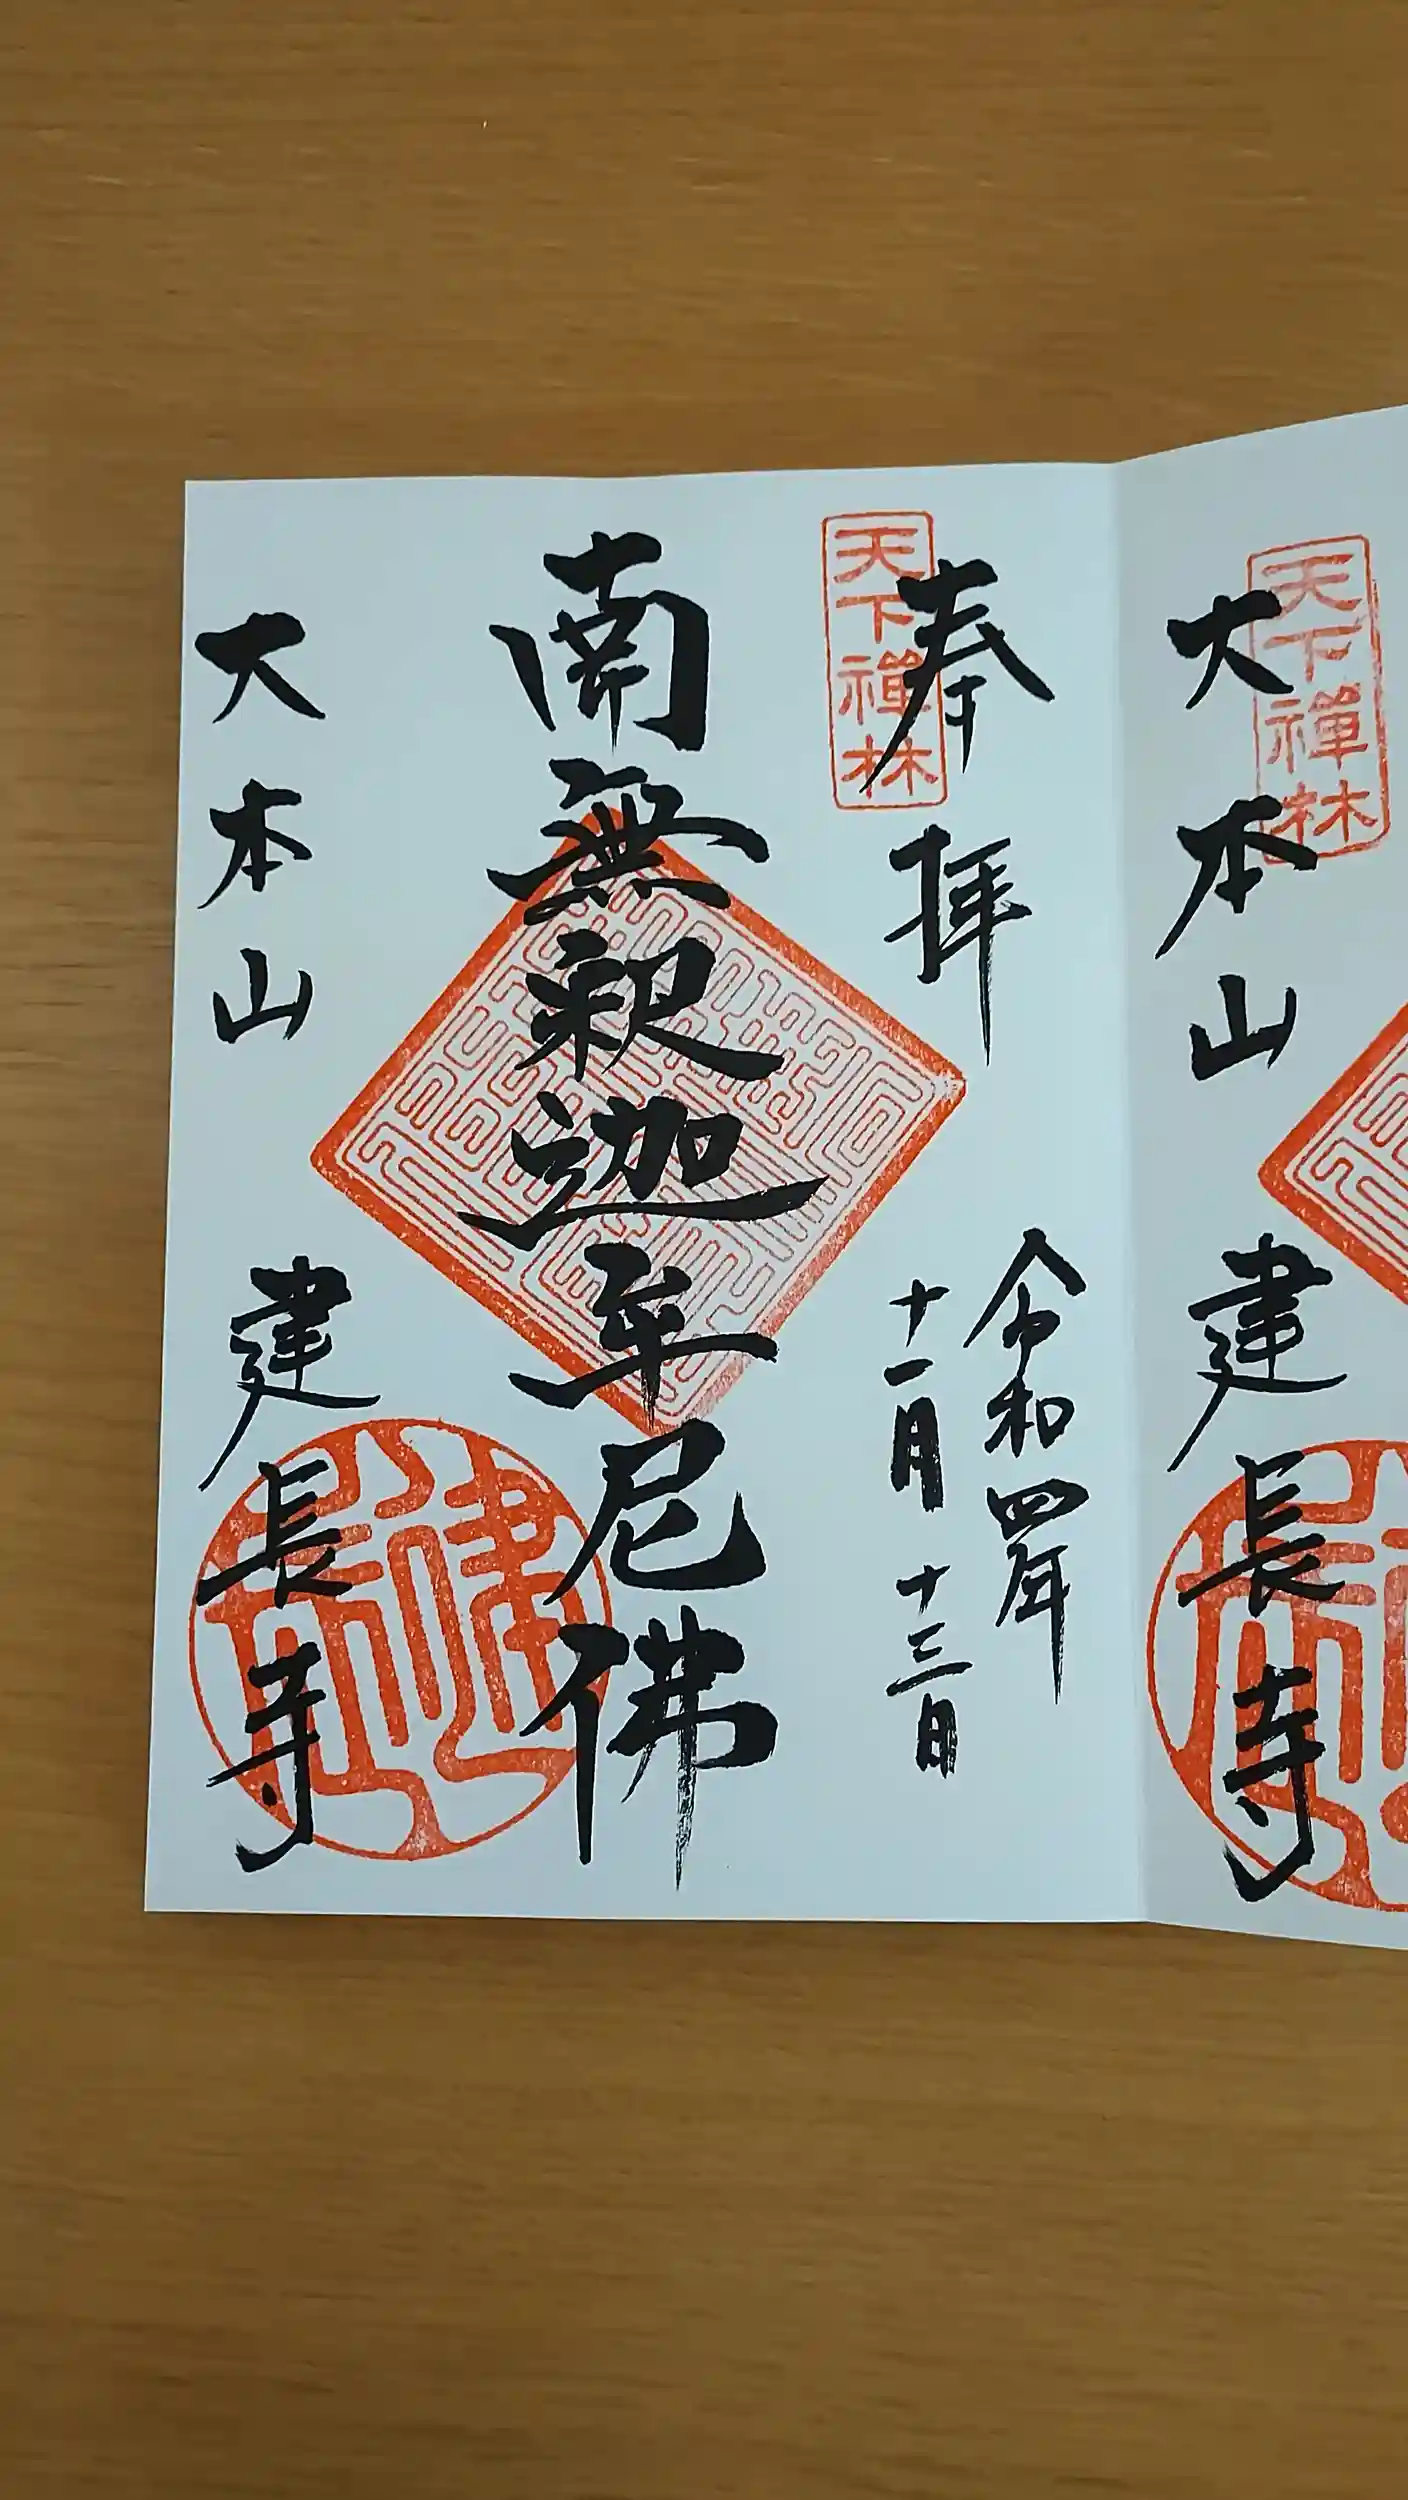 大本山 建長寺
天下禪林
奉拝
令和四年
十一月十三日
天下禪林
南無釈迦牟尼佛
大本山 建長寺